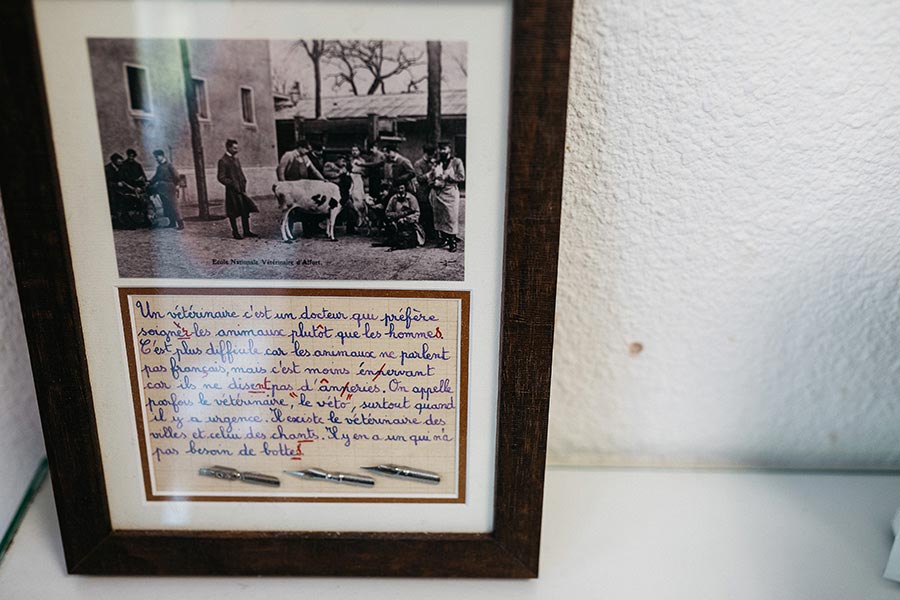 Ecole Nationale Vétérinaire d'Alfort.
Un vétérinaire c'est un docteur qui préfère
soigner les animaux plutôt que les hommes.
C'est plus difficile car les animaux ne parlent
pas français, mais c'est moins énnervant
car ils ne disent pas d'ânneries. On appelle
parfois le vétérinaire, "le véto", surtout quand
il y a urgence. Il existe le vétérinaire des
villes et celui des chants. Il y en a un qui n'a
pas besoin de bottes